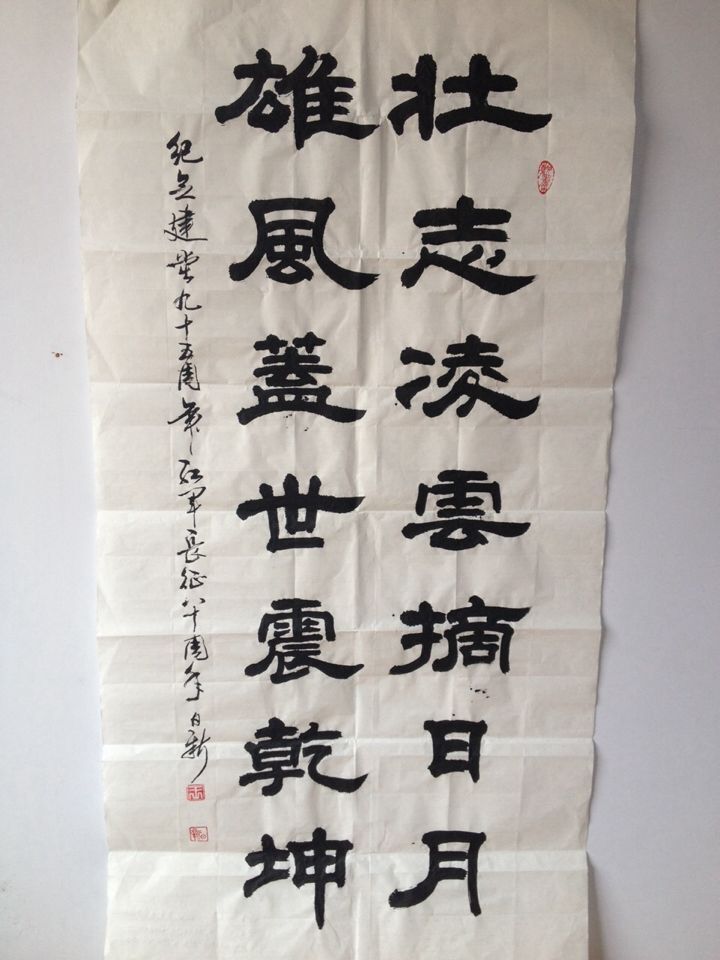 壮志凌雲摘日月
雄風蓋世震乾坤
纪念建党九十五周年、红军長征八十周年日新